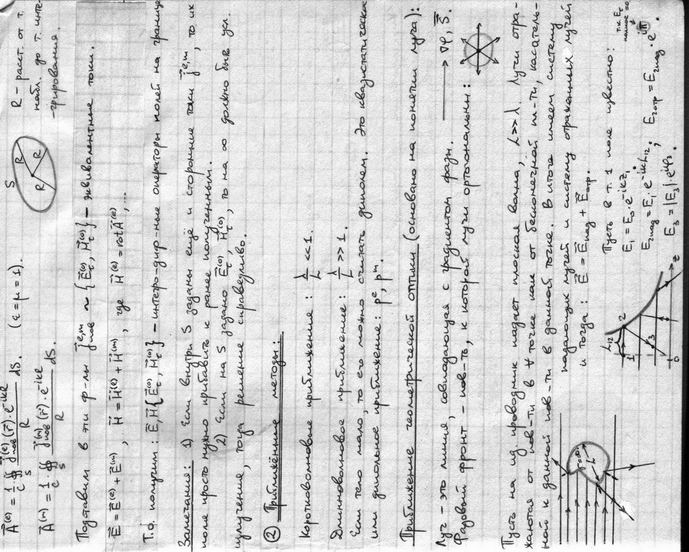 A⃗^(e) = 1/c ∯_S j⃗^(e)_пов(r⃗)·e^{-ikR}/R dS. (ε=μ=1). S R - расст. от т. набл. до т. интегрирования.
A⃗^(m) = 1/c ∯_S j⃗^(m)_пов(r⃗)·e^{-ikR}/R dS.
Подставим в эти ф-лы j⃗^{e,m}_пов ~ {E⃗_τ^(0), H⃗_τ^(0)} - эквивалентные токи.
E⃗ = E⃗^(e) + E⃗^(m), H⃗ = H⃗^(e) + H⃗^(m), где H⃗^(e) = rot A⃗^(e), ...
Т.о. получили: E⃗, H⃗ {E⃗_τ^(0), H⃗_τ^(0)} - интегро-дифр-ные операторы полей на границе
Замечания: 1) Если внутри S заданы ещё и сторонние токи j⃗^{e,m}, то их
поле просто нужно прибавить к ранее полученным.
2) Если на S задано E⃗_τ^(0), H⃗_τ^(0), то на ∞ должно быть усл.
излучения, тогда решение справедливо.
② Приближённые методы:
Коротковолновые приближения: λ/L << 1.
Длинноволновое приближение: λ/L >> 1.
Если тело мало то его можно считать диполем. Это квазистатическое
или дипольное приближение: p^e, p^m.
Приближение геометрической оптики (основано на понятии луча):
Луч - это линия, совпадающая с градиентом фазы. → ∇φ, S⃗.
Фазовый фронт - пов-ть, к которой лучи ортогональны:
Пусть на ид. проводник падает плоская волна, L >> λ. Лучи отра-
жаются от пов-ти в ∀ точке как от бесконечной пл-ти, касатель-
ной к данной пов-ти в данной точке. В итоге имеем систему
падающих лучей и систему отраженных лучей
и тогда: E⃗ = E⃗_пад + E⃗_отр.
Пусть в т. 1 поле известно:
E₁ = E₀·e^{-ikz₁};
E_2пад = E₁·e^{-ikL₁₂}; E_2отр = E_2пад·e^{iπ}
E₃ = |E₃|·e^{iφ₃}.
L₁₂
1
2
3
0
z
L